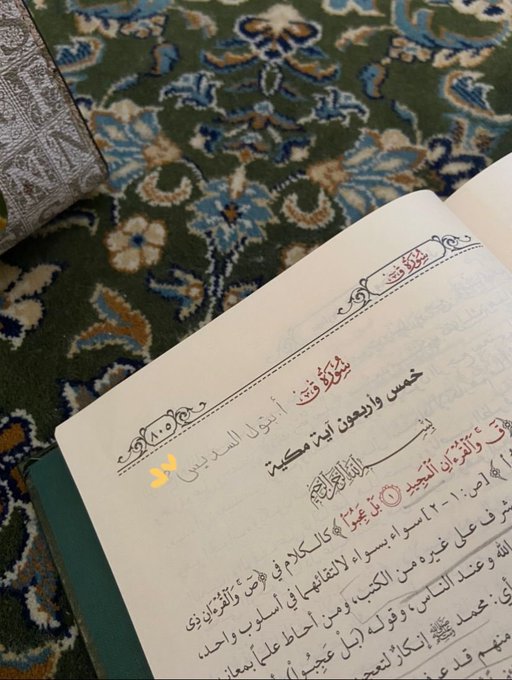 سُورَةُ قٓ
٨٠٥
سُورَةُ قٓ أ. بتول السديس
خمس وأربعون آية مكية
بِسْمِ اللَّهِ الرَّحْمَنِ الرَّحِيمِ
﴿قٓ وَٱلْقُرْءَانِ ٱلْمَجِيدِ ١ بَلْ عَجِبُوٓا۟
﴾ كالكلام في ﴿صٓ وَٱلْقُرْءَانِ ذِى
﴾ [ص: ١-٢] سواء بسواء لالتقائهما في أسلوب واحد،
شرف على غيره من الكتب، ومن أحاط علماً
الله وعند الناس، وقوله (بَلْ عَجِبُوٓا۟)
أي: محمد ﷺ إنكارٌ
منهم قد